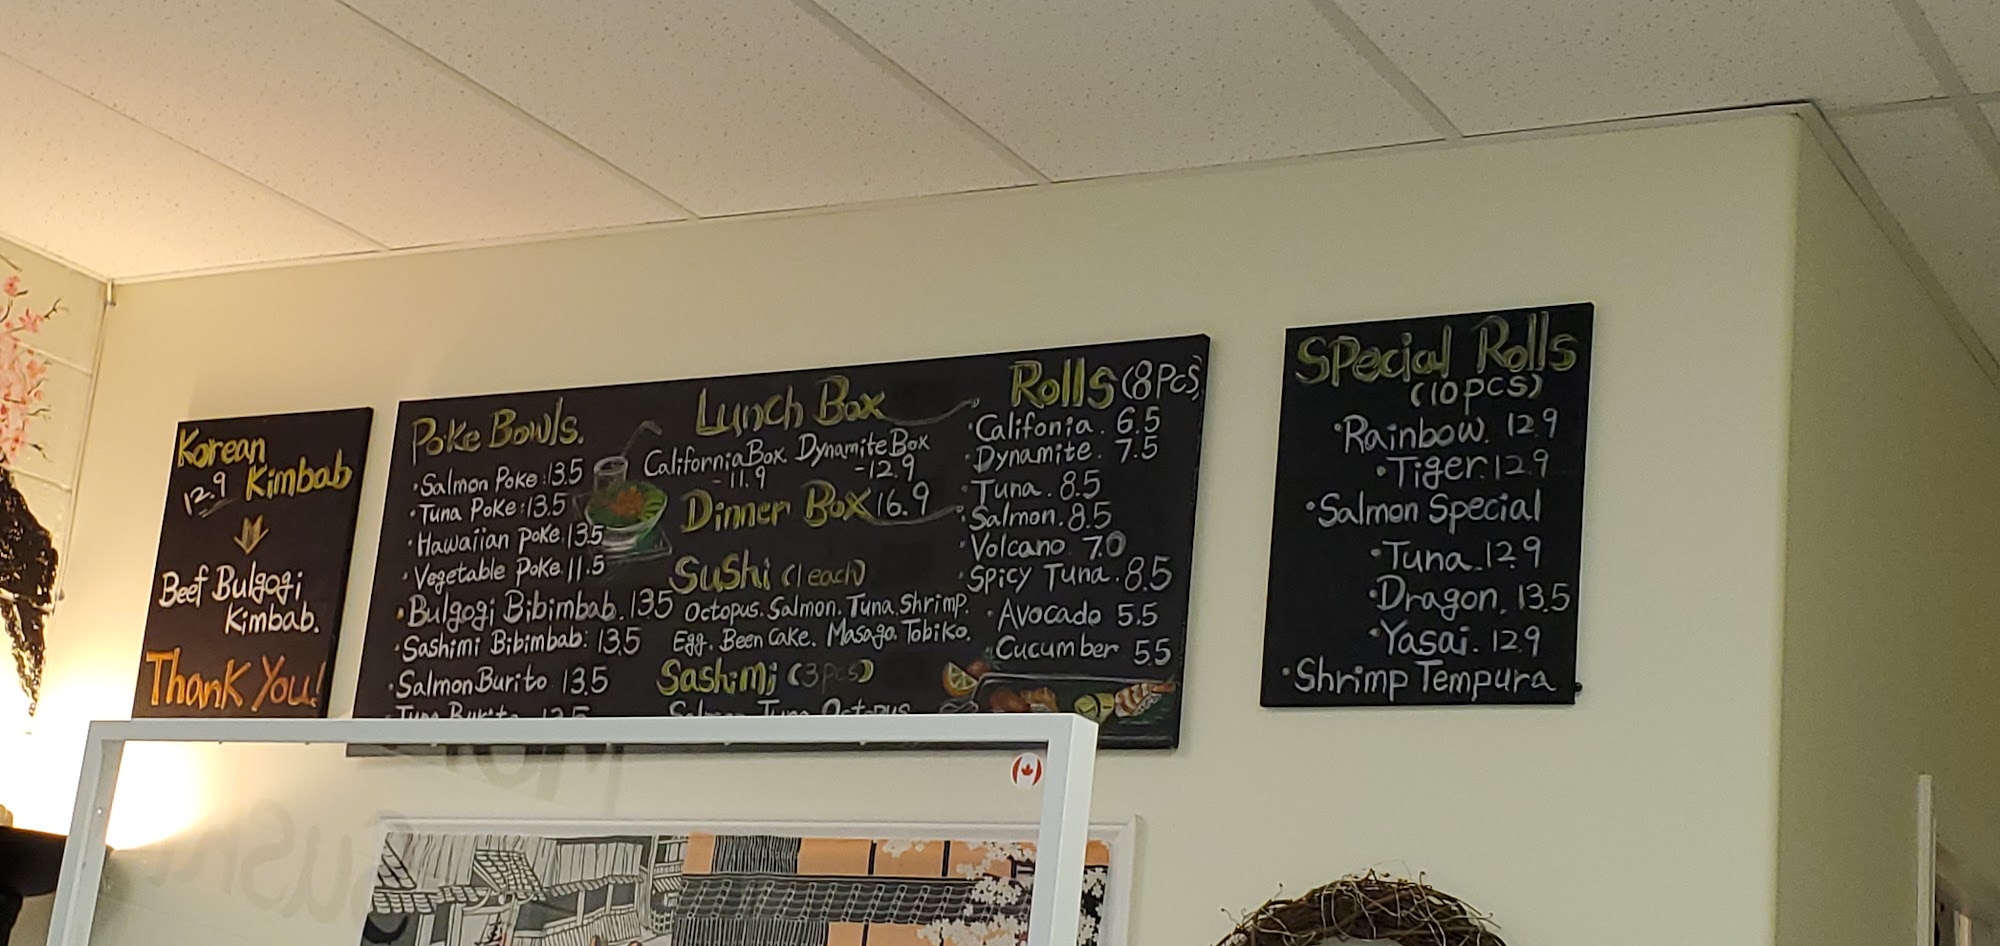 Korean
12.9 Kimbab
Beef Bulgogi
Kimbab.
Thank You!
Poke Bowls.
·Salmon Poke:13.5
·Tuna Poke:13.5
·Hawaiian Poke.13.5
·Vegetable Poke.11.5
·Bulgogi Bibimbab.13.5
·Sashimi Bibimbab.13.5
·Salmon Burito 13.5
Tuna Burito 13.5
Lunch Box
California Box Dynamite Box
-11.9 -12.9
Dinner Box 16.9
Sushi (1 each)
Octopus. Salmon. Tuna. Shrimp.
Egg. Been Cake. Masago. Tobiko.
Sashimi (3pcs)
Salmon Tuna Octopus
Rolls (8pcs)
·Califonia. 6.5
·Dynamite. 7.5
·Tuna. 8.5
·Salmon. 8.5
·Volcano 7.0
·Spicy Tuna. 8.5
·Avocado 5.5
·Cucumber 5.5
Special Rolls
(10pcs)
·Rainbow. 12.9
·Tiger.12.9
·Salmon Special
·Tuna.12.9
·Dragon. 13.5
·Yasai. 12.9
·Shrimp Tempura